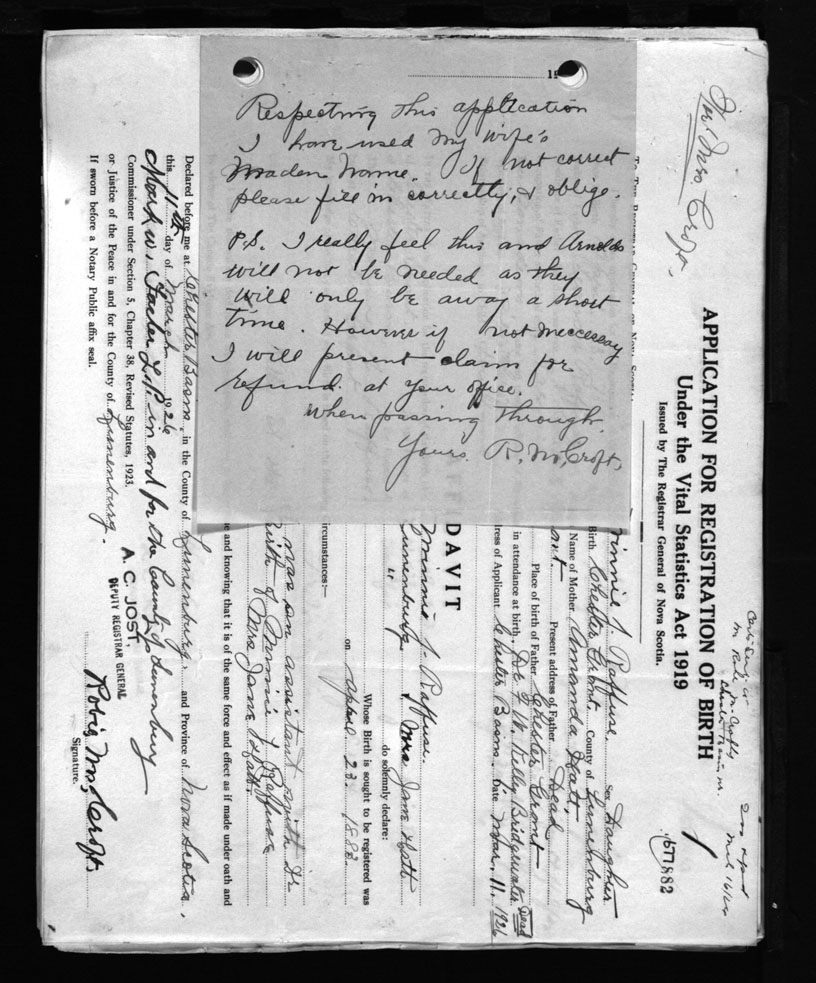 19
Respecting this application
I have used my wife's
Maden Name. If not correct
please fill in correctly, & oblige.
P.S. I really feel this and Arnolds
will not be needed as they
will only be away a short
time. However if not neccessay
I will present claim for
refund. at your office.
when passing through.
Yours. R. M. Croft.
APPLICATION FOR REGISTRATION OF BIRTH
Under the Vital Statistics Act 1919
Issued by The Registrar General of Nova Scotia.
innie S. Raffuse. Sex Daughter
Birth Chester Grant. County of Lunenburg
Name of Mother Amanda Hatt,
ant. Present address of Father Dead
Place of birth of Father Chester Grant
in attendance at birth, Dr F. W. Kelly Bridgewater Dead
ress of Applicant Chester Basin. Date Mar. 11. 1926
DAVIT
Minnie S. Raffuse.
unenburg. & Mrs Jane Hatt
do solemnly declare:
Whose Birth is sought to be registered was
on April 23. 1882
ircumstances:—
was an assistant with Dr
Birth of Minnie S Raffuse
Mrs Jane Hatt.
e and knowing that it is of the same force and effect as if made under oath and
Declared before me at Chester Basin, in the County of Lunenburg. and Province of Nova Scotia,
this 11th day of March 1926
Mark W. J.P. in and for the County of Lunenburg
Commissioner under Section 5, Chapter 38, Revised Statutes, 1923.
or Justice of the Peace in and for the County of Lunenburg.
If sworn before a Notary Public affix seal.
A. C. JOST,
DEPUTY REGISTRAR GENERAL
Robie M. Croft.
Signature.